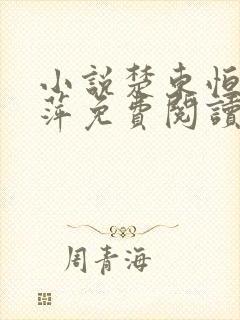 小說楚東恒
萍免費閱讀
周青海